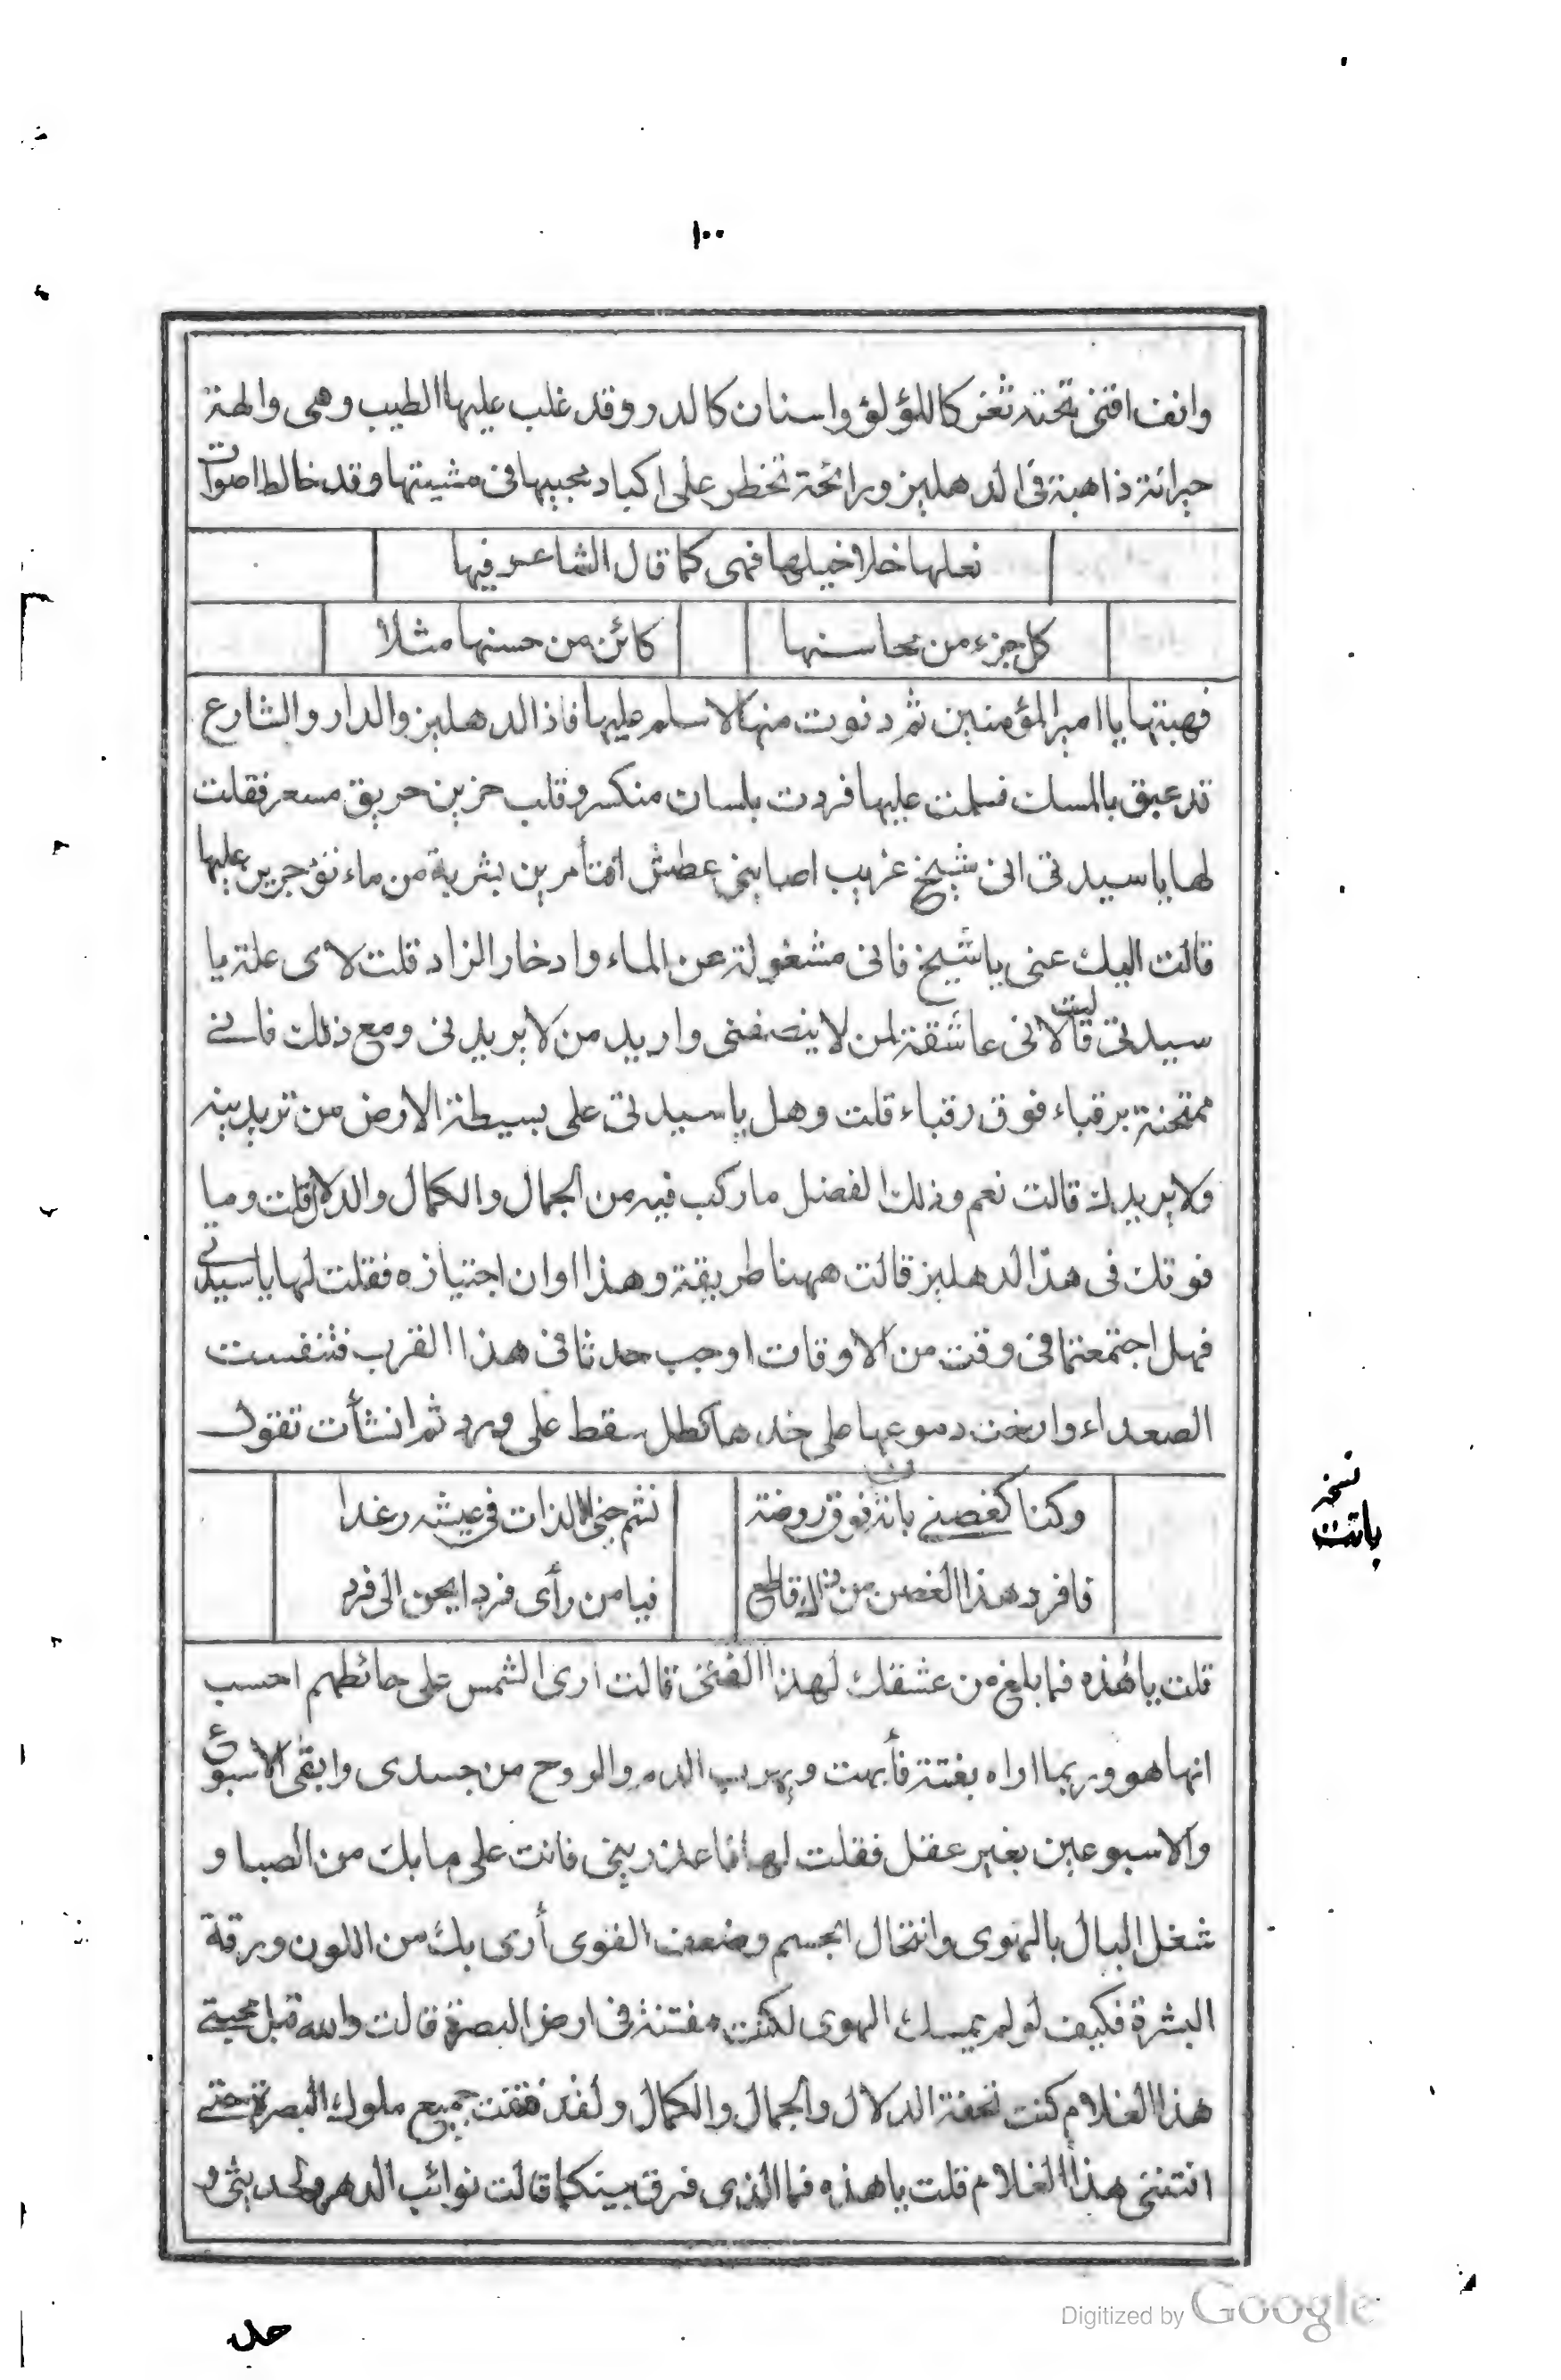 ١٠٠
وانف اقنى تحته ثغر كاللؤلؤ واسنان كالدر وقد غلب عليها الطيب وهى والهة
حيرانة ذاهبة فى الدهليز ورائحة تخطر على اكباد محبيها فى مشيتها وقد خالط اصوات
نعلها خلاخيلها فهى كما قال الشاعر فيها
كل جزء من محاسنها كائن من حسنها مثلا
فهبتها يا امير المؤمنين ثم دنوت منها لاسلم عليها فاذا الدهليز والدار والشارع
قد عبق بالمسك فسلمت عليها فردت بلسان منكسر وقلب حزين حريق مسعر فقلت
لها يا سيدتى انى شيخ غريب اصابنى عطش افتأمرين بشربة من ماء تؤجرين عليها
قالت اليك عنى يا شيخ فانى مشغولة عن الماء وادخار الزاد قلت لاى علة يا
سيدتى قالت لانى عاشقة لمن لا ينصفنى واريد من لا يريدنى ومع ذلك فانى
ممتحنة برقباء فوق رقباء قلت وهل يا سيدتى على بسيطة الارض من تريدينه
ولا يريدك قالت نعم وذلك لفضل ما ركب فيه من الجمال والكمال والدلال قلت وما
فوتك فى هذا الدهليز قالت ههنا طريقة وهذا اوان اجتيازه فقلت لها يا سيدتى
فهل اجتمعتما فى وقت من الاوقات اوجب حدثا فى هذا القرب فتنفست
الصعداء وارخت دموعها على خدها كطل سقط على ورد ثم انشأت تقول
وكنا كغصنى بانة فوق روضة نشم جنى اللذات فى عيشة رغدا
فافرد هذا الغصن من ذاك قاطع فيا من رأى فردا يحن الى فرد
نسخه
باتت
قلت يا هذه فما بلغ من عشقك لهذا الفتى قالت ارى الشمس على حائطهم احسب
انها هو وربما اراه بغتة فأبهت ويهرب الدم والروح من جسدى وابقى الاسبوع
والاسبوعين بغير عقل فقلت لها فاعذرينى فانت على ما بك من الصبا و
شغل البال بالهوى وانتحال الجسم وضعف القوى أرى بك من اللون ورقة
البشرة فكيف لو لم يمسك الهوى لكنت مفتنة فى ارض البصرة قالت والله قبل محبتى
هذا الغلام كنت تحفة الدلال والجمال والكمال ولقد فتنت جميع ملوك البصرة حتى
افتننى هذا الغلام قلت يا هذه فما الذى فرق بينكما قالت نوائب الدهر ولحديثى و
حد
Digitized by Google